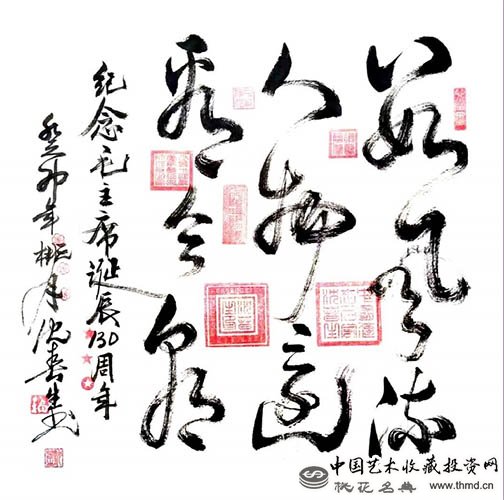 数风流
人物还
看今朝
纪念毛主席诞辰130周年
癸卯年桃月
中国艺术收藏投资网
桃花名典 www.thmd.cn